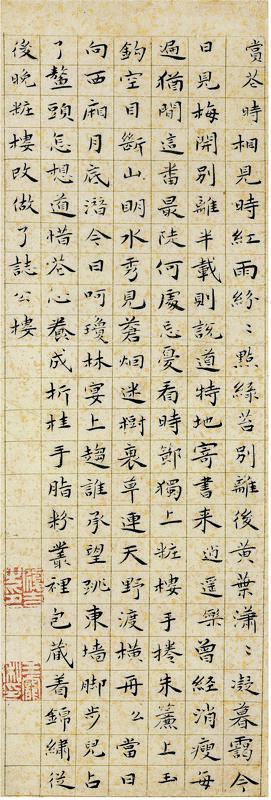 賞花時相見時紅雨紛〻點綠苔別離後黃葉瀟〻凝暮靄今
日見梅開別離半載則說道特地寄書來 逍遥樂曾經消瘦每
遍猶閒這番最陡何處忘憂看時節獨上粧樓手捲朱簾上玉
鈎空目斷山明水秀見蒼烟迷樹衰草連天野渡橫舟么當日
向西廂月底潛今日呵瓊林宴上搊誰承望跳東墻脚步兒占
了鰲頭怎想道惜花心養成折桂手脂粉叢裡包藏着錦繡從
後晚粧樓改做了誌公樓